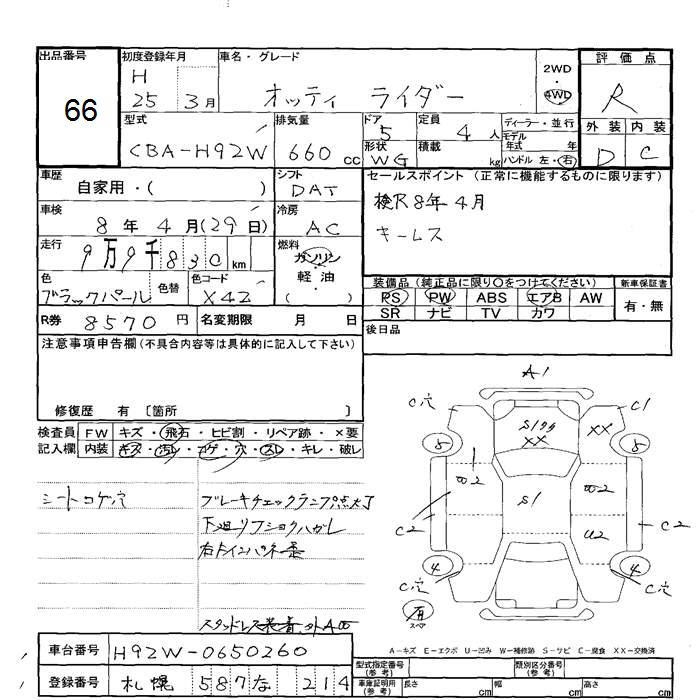 出品番号
66
初度登録年月
H
25 3月
車名・グレード
オッティ ライダー
2WD
・
4WD
評価点
R
外装 内装
D C
型式
CBA-H92W
排気量
660 cc
ドア
5
形状
WG
定員
4 人
積載
kg
ディーラー・並行
モデル
年式 年
ハンドル 左・右
車歴
自家用・( )
シフト
DAT
セールスポイント (正常に機能するものに限ります)
検R8年4月
キーレス
車検
8年 4月(29日)
冷房
AC
走行
9万9千830 km
燃料
ガソリン
軽・油
( )
色
ブラックパール
色替
色コード
X42
装備品 (純正品に限り○をつけてください)
PS PW ABS エアB AW
SR ナビ TV カワ
新車保証書
有・無
R券 8570 円
名変期限 月 日
後日品
注意事項申告欄(不具合内容等は具体的に記入して下さい)
修復歴 有 〔箇所 〕
検査員
記入欄
FW キズ・飛石・ヒビ割・リペア跡・×要
内装 キズ・汚レ・コゲ・穴・スレ・キレ・破レ
シートコゲ穴
ブレーキチェックランプ点灯
スタッドレス装着
A1
C穴
C1
S1
XX
XX
5
5
S1
C2
C2
U2
4
4
C穴
C穴
有
スペア
A-キズ E-エクボ U-凹み W-補修跡 S-サビ C-腐食 XX-交換済
車台番号 H92W-0650260
型式指定番号
(参考)
類別区分番号
(参考)
登録番号 札幌 587 な 214
車庫証明用
(参考)
長さ cm
幅 cm
高さ cm